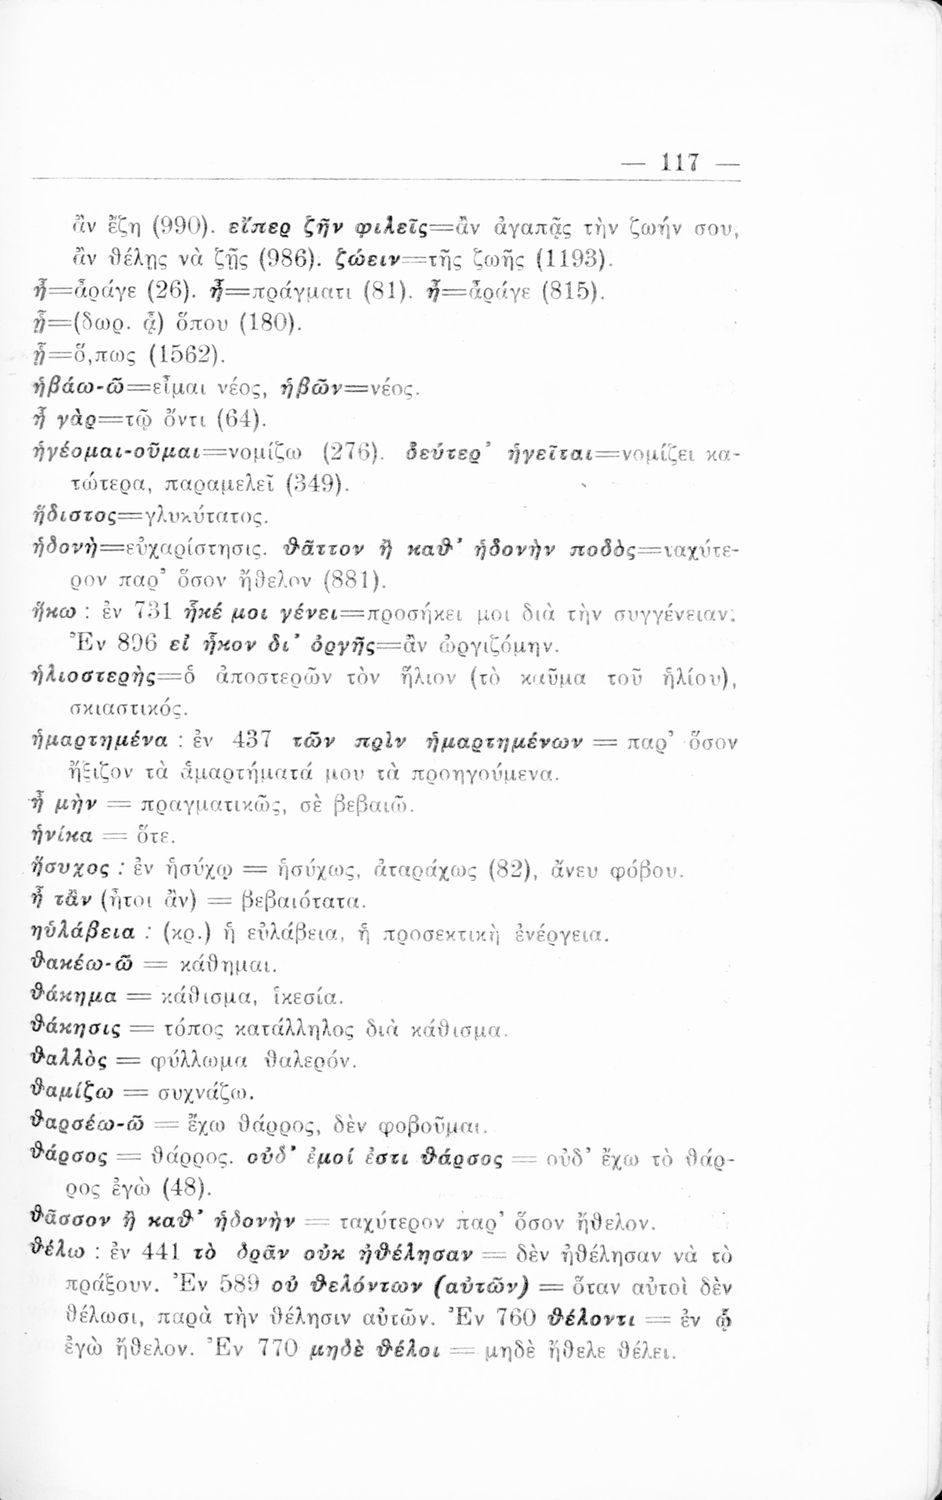 — 117 —
ἂν ἔζη (990). εἴπερ ζῆν φιλεῖς=ἂν ἀγαπᾷς τὴν ζωήν σου,
ἂν θέλῃς νὰ ζῇς (986). ζώειν=τῆς ζωῆς (1193).
ἦ=ἆράγε (26). ἦ=πράγματι (81). ἦ=ἆράγε (815).
ᾗ=(δωρ. ᾇ) ὅπου (180).
ᾗ=ὅ,πως (1562).
ἡβάω-ῶ=εἶμαι νέος, ἡβῶν=νέος.
ἦ γὰρ=τῷ ὄντι (64).
ἡγέομαι-οῦμαι=νομίζω (276). δεύτερ' ἡγεῖται=νομίζει κα-
τώτερα, παραμελεῖ (349).
ἥδιστος=γλυκύτατος.
ἡδονὴ=εὐχαρίστησις. θᾶττον ἢ καθ' ἡδονὴν ποδὸς=ταχύτε-
ρον παρ' ὅσον ἤθελον (881).
ἥκω : ἐν 731 ἧκέ μοι γένει=προσήκει μοι διὰ τὴν συγγένειαν.
Ἐν 896 εἰ ἧκον δι' ὀργῆς=ἂν ὠργιζόμην.
ἡλιοστερὴς=ὁ ἀποστερῶν τὸν ἥλιον (τὸ καῦμα τοῦ ἡλίου),
σκιαστικός.
ἡμαρτημένα : ἐν 437 τῶν πρὶν ἡμαρτημένων = παρ' ὅσον
ἤξιζον τὰ ἁμαρτήματά μου τὰ προηγούμενα.
ἦ μὴν = πραγματικῶς, σὲ βεβαιῶ.
ἡνίκα = ὅτε.
ἥσυχος : ἐν ἡσύχῳ = ἡσύχως, ἀταράχως (82), ἄνευ φόβου.
ἦ τἂν (ἦτοι ἂν) = βεβαιότατα.
ηὐλάβεια : (κρ.) ἡ εὐλάβεια, ἡ προσεκτικὴ ἐνέργεια.
θακέω-ῶ = κάθημαι.
θάκημα = κάθισμα, ἱκεσία.
θάκησις = τόπος κατάλληλος διὰ κάθισμα.
θαλλὸς = φύλλωμα θαλερόν.
θαμίζω = συχνάζω.
θαρσέω-ῶ = ἔχω θάρρος, δὲν φοβοῦμαι.
θάρσος = θάρρος. οὐδ' ἐμοί ἐστι θάρσος = οὐδ' ἔχω τὸ θάρ-
ρος ἐγὼ (48).
θᾶσσον ἢ καθ' ἡδονὴν = ταχύτερον παρ' ὅσον ἤθελον.
θέλω : ἐν 441 τὸ δρᾶν οὐκ ἠθέλησαν = δὲν ἠθέλησαν νὰ τὸ
πράξουν. Ἐν 589 οὐ θελόντων (αὐτῶν) = ὅταν αὐτοὶ δὲν
θέλωσι, παρὰ τὴν θέλησιν αὐτῶν. Ἐν 760 θέλοντι = ἐν ᾧ
ἐγὼ ἤθελον. Ἐν 770 μηδὲ θέλοι = μηδὲ ἤθελε θέλει.